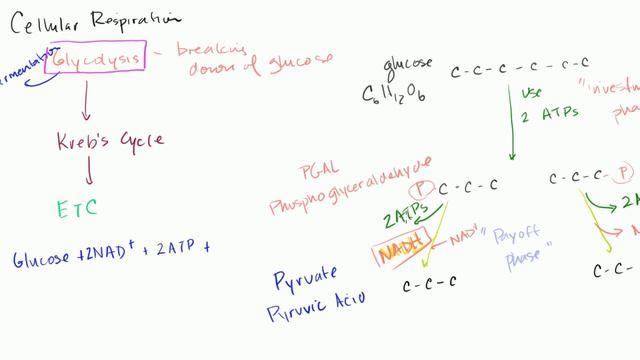 Cellular Respiration
ermentation
Glycolysis - breaking
down of glucose
Kreb's Cycle
ETC
Glucose + 2NAD+ + 2ATP +
glucose
C6H12O6
C - C - C - C - C - C
use
2 ATPs
"investm
pha
PGAL
Phosphoglyceraldehyde
P C - C - C
C - C - C - P
2ATPs
2A
NADH
NAD+
"Payoff
phase"
N
Pyruvate
Pyruvic Acid
C - C - C
C - C -